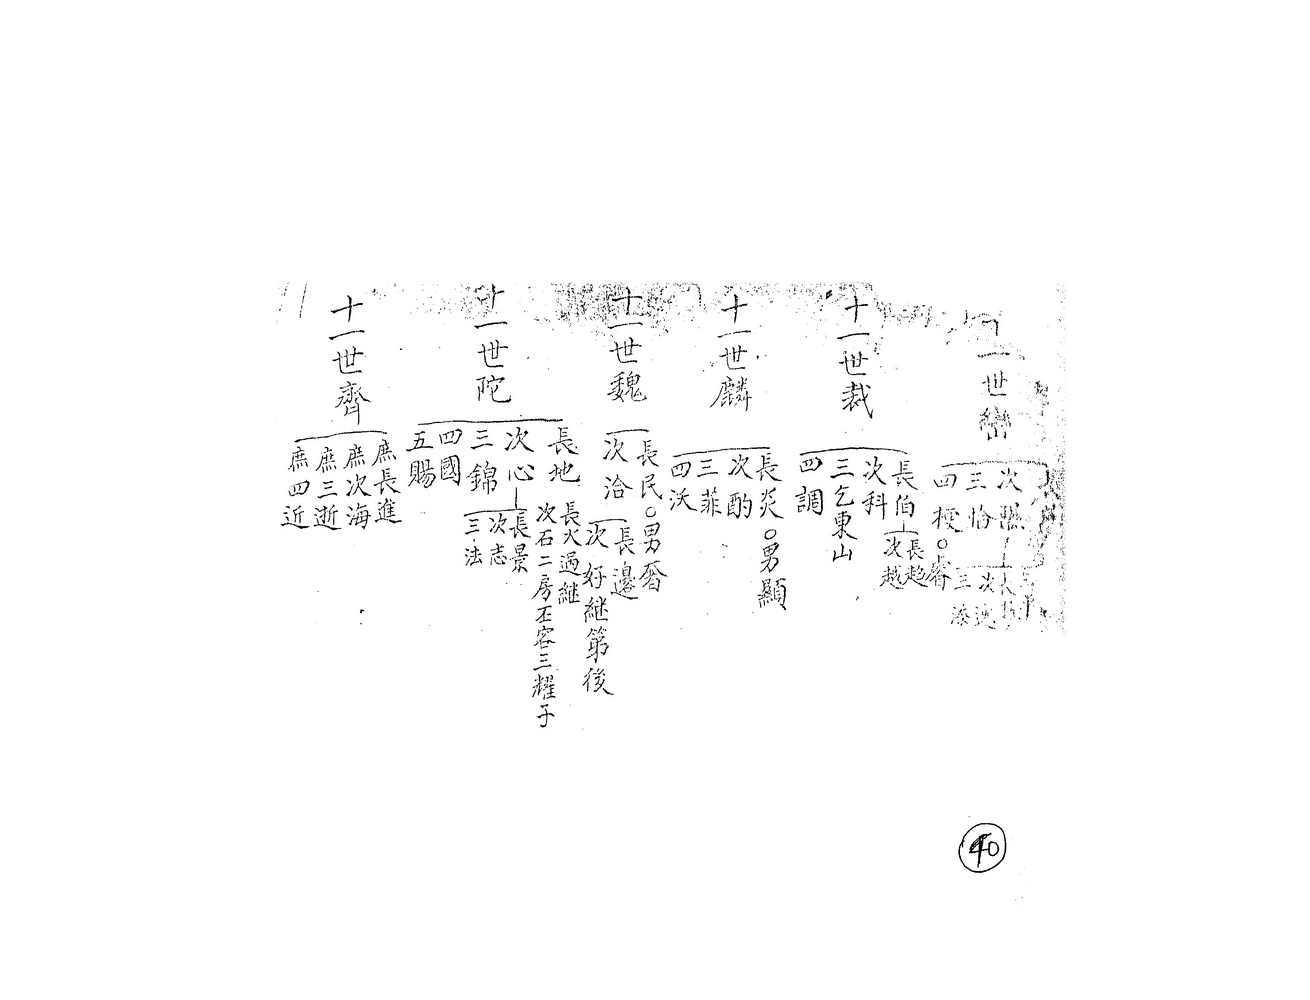 一世巒
次
三恰
四梗
次
三添
十一世裁
長伯
次科
三乞東山
四調
長趂
次越
十一世麟
長炎○男顯
次酌
三菲
四沃
十一世魏
長民○男
次洽
長邊
次好継第後
十一世陀
長地
次心
三錦
四國
五賜
長火過継
次石二房丕容三耀子
長景
次志
三法
十一世齊
庶長進
庶次海
庶三逝
庶四近
40